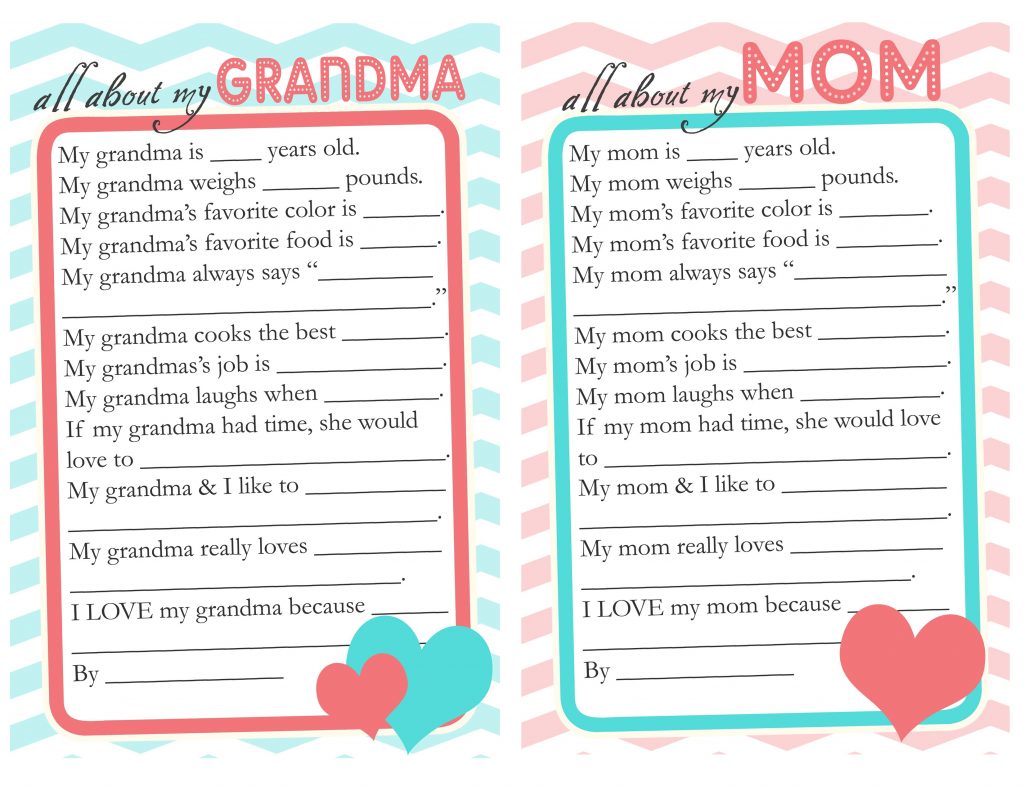 all about my GRANDMA
My grandma is ____ years old.
My grandma weighs ______ pounds.
My grandma's favorite color is ______.
My grandma's favorite food is ______.
My grandma always says “_________
_____________________________.”
My grandma cooks the best ________.
My grandmas's job is _____________.
My grandma laughs when _________.
If my grandma had time, she would
love to ________________________.
My grandma & I like to ___________
_____________________________.
My grandma really loves __________
__________________________.
I LOVE my grandma because ______
____________________________
By ______________
all about my MOM
My mom is ____ years old.
My mom weighs ______ pounds.
My mom's favorite color is _______.
My mom's favorite food is ________.
My mom always says “____________
_____________________________.”
My mom cooks the best __________.
My mom's job is ________________.
My mom laughs when ___________.
If my mom had time, she would love
to ___________________________.
My mom & I like to _____________
_____________________________.
My mom really loves ____________
__________________________.
I LOVE my mom because ________
____________________
By ______________